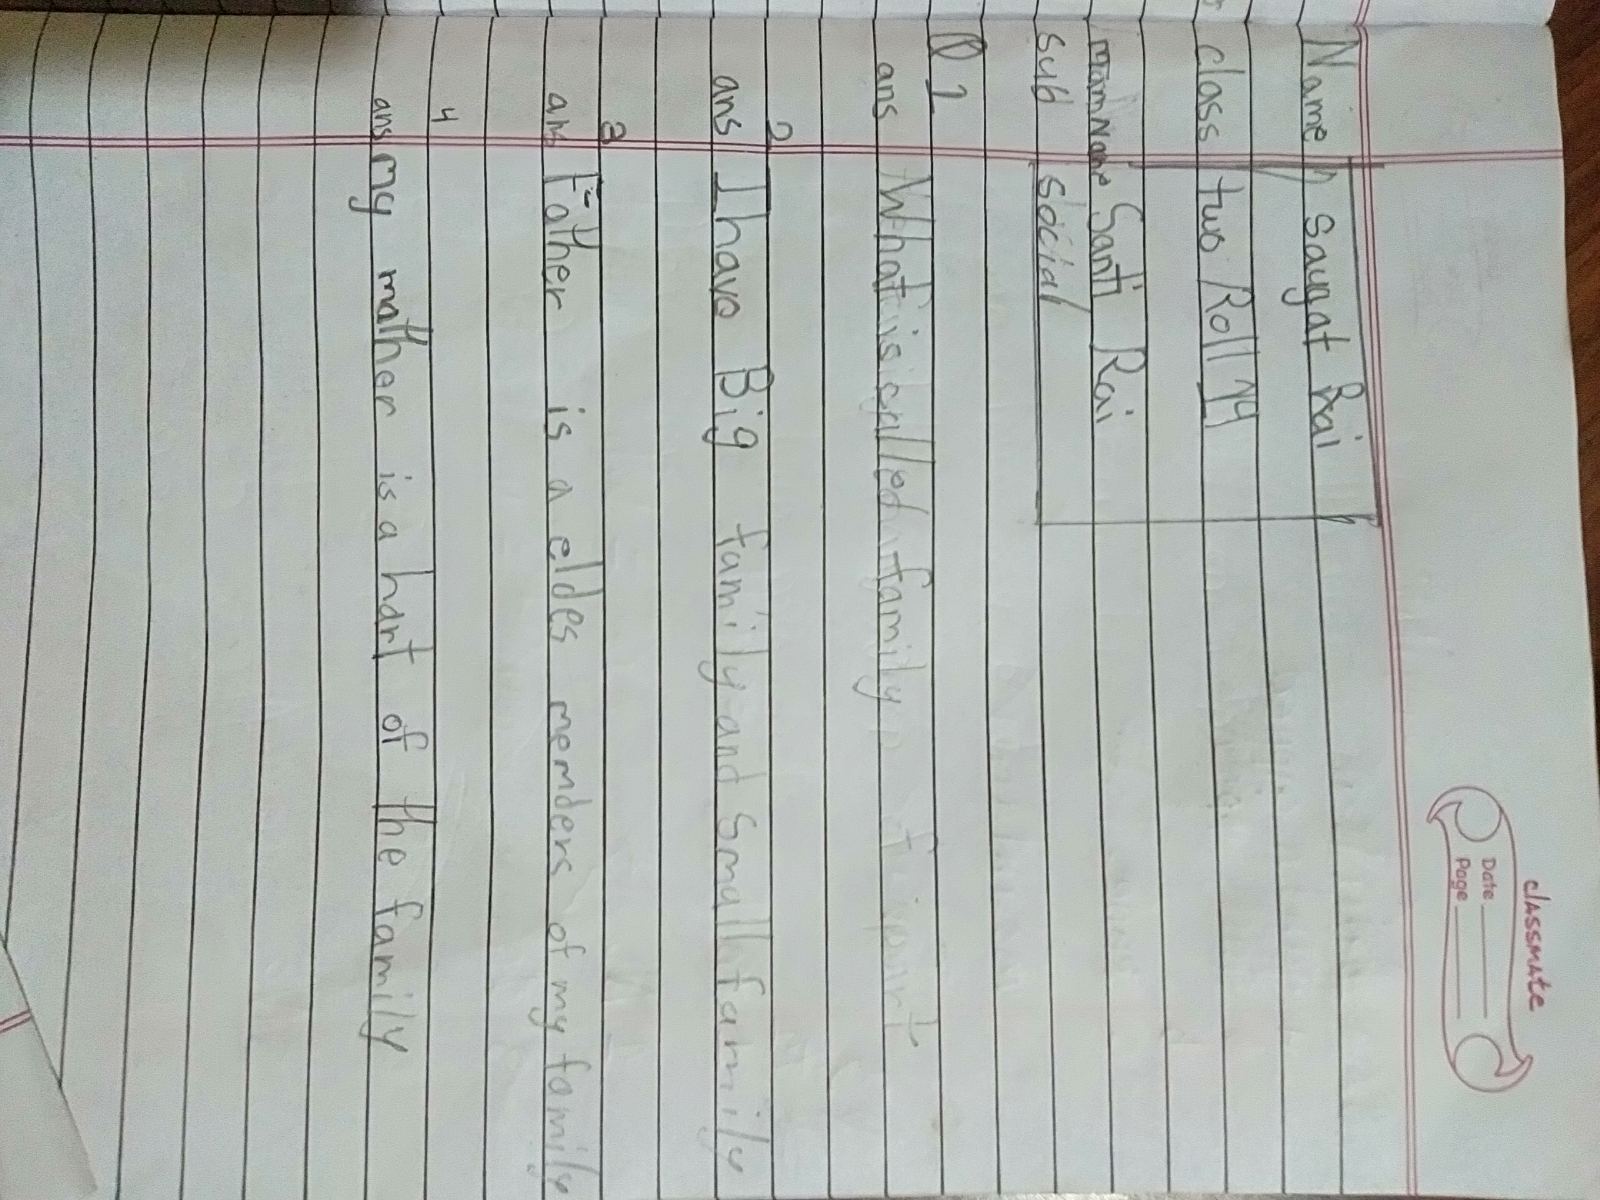 classmate
Date
Page
Name Saugat Rai
class two Roll 14
mam Name Santi Rai
Sub Social
Q 1
ans What is called family
2
ans I have Big family and Small family
3
ans Father is a eldes memders of my family
4
ans my mather is a hart of the family